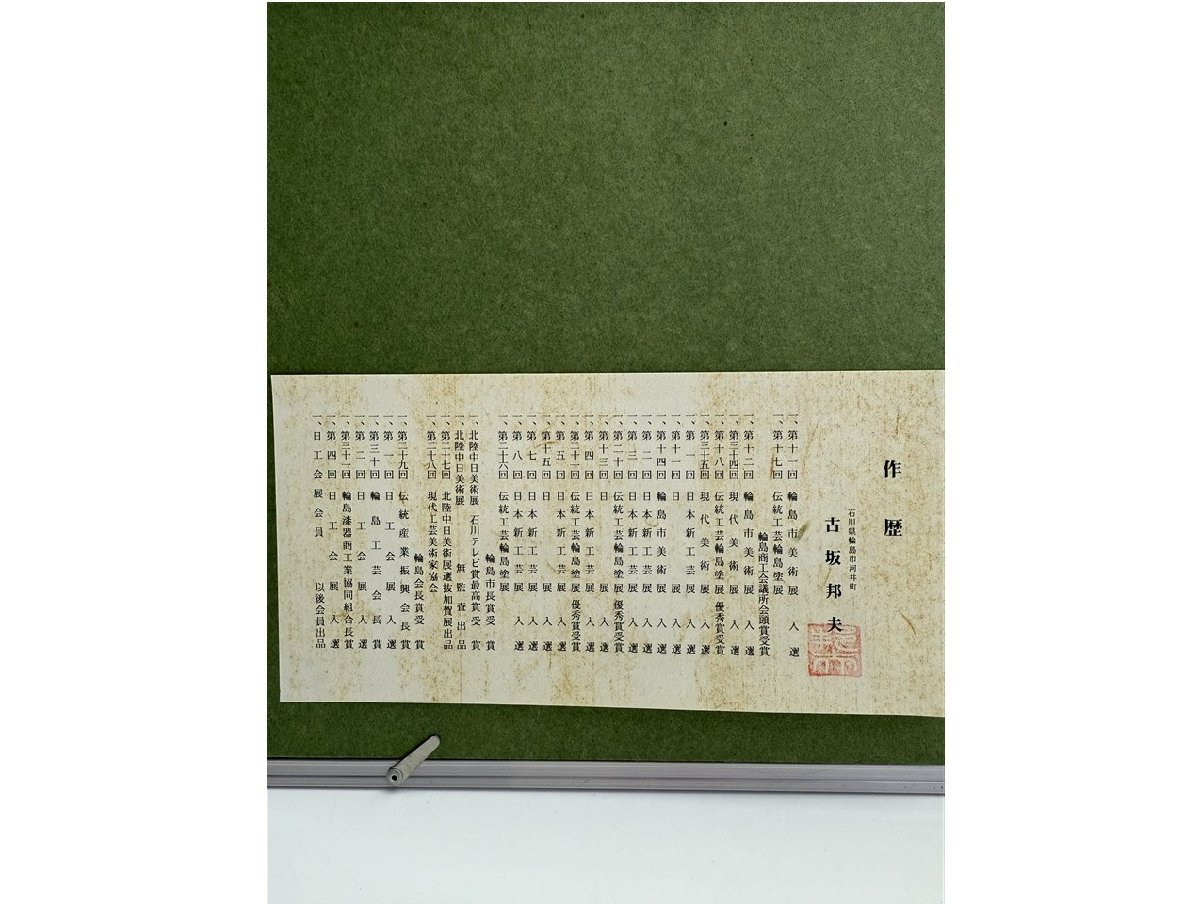 作歴
石川県輪島市河井町
古坂邦夫
一、第十一回 輪島市美術展 入選
一、第十七回 伝統工芸輪島塗展
輪島商工会議所会頭賞受賞
一、第十二回 輪島市美術展 入選
一、第三十四回 現代美術展 入選
一、第十八回 伝統工芸輪島塗展 優秀賞受賞
一、第三十五回 現代美術展 入選
一、第一回 日本新工芸展 入選
一、第十一回 日展 入選
一、第十四回 輪島市美術展 入選
一、第二回 日本新工芸展 入選
一、第三回 日本新工芸展 入選
一、第二十回 伝統工芸輪島塗展 優秀賞受賞
一、第十三回 日展 入選
一、第四回 日本新工芸展 入選
一、第二十一回 伝統工芸輪島塗展 優秀賞受賞
一、第五回 日本新工芸展 入選
一、第十五回 日展 入選
一、第七回 日本新工芸展 入選
一、第八回 日本新工芸展 入選
一、第二十六回 伝統工芸輪島塗展
輪島市長賞受賞
一、北陸中日美術展 石川テレビ賞最高賞受賞
一、北陸中日美術展 無監査出品
一、第二十七回 北陸中日美術展選抜加賀展出品
一、第二十八回 現代工芸美術家協会
輪島会長賞受賞
一、第二十九回 伝統産業振興会長賞
一、第一回 日工会展 入選
一、第三十回 輪島工芸会長賞
一、第二回 日工会展 入選
一、第三十一回 輪島漆器商工業協同組合長賞
一、第四回 日工会展 入選
一、日工会展会員 以後会員出品